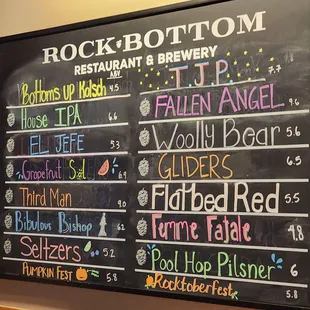 ROCK·BOTTOM
RESTAURANT & BREWERY
ABV
Bottoms up Kolsch 4.5
House IPA 6.6
EL JEFE 5.3
Grapefruit Sol 6.4
Third Man 9.0
Bibulous Bishop 6.2
Seltzers 5.2
PUMPKIN FEST 5.8
I.J.P. 7.7
FALLEN ANGEL 9.6
Woolly Bear 5.6
GLIDERS 6.5
Flatbed Red 5.5
Femme Fatale 4.8
Pool Hop Pilsner 6
Rocktoberfest 5.8